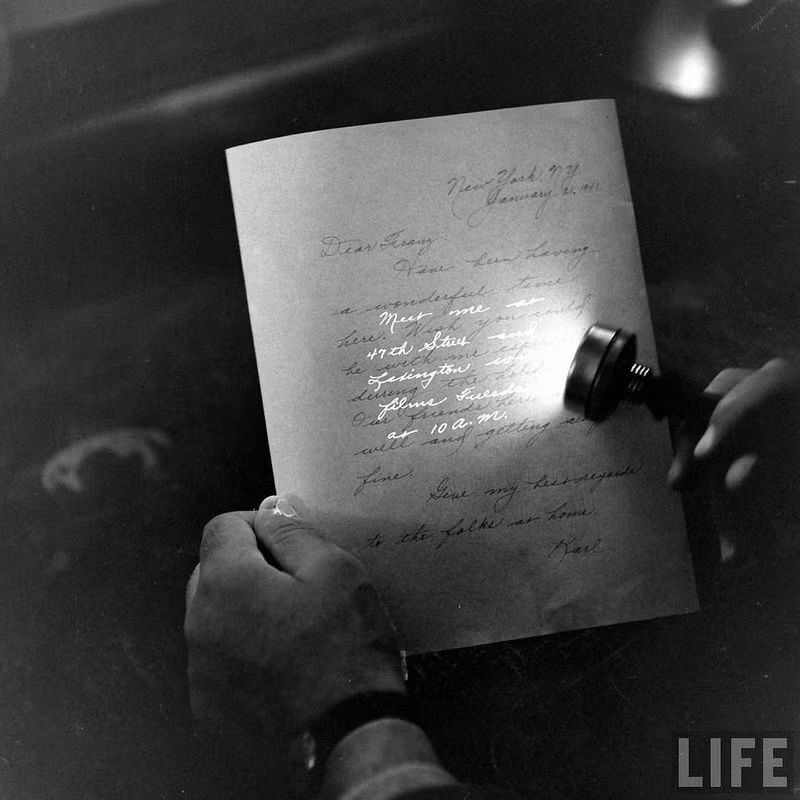 New York, N.Y.
January 21, 1941
Dear Franz:
Have been having
a wonderful time
Meet me at
here. Wish you could
47th Street and
be with me
Lexington
during the
films Tuesday
Our friends here
at 10 A.M.
well and getting along
fine.
Give my best regards
to the folks at home.
Karl
LIFE